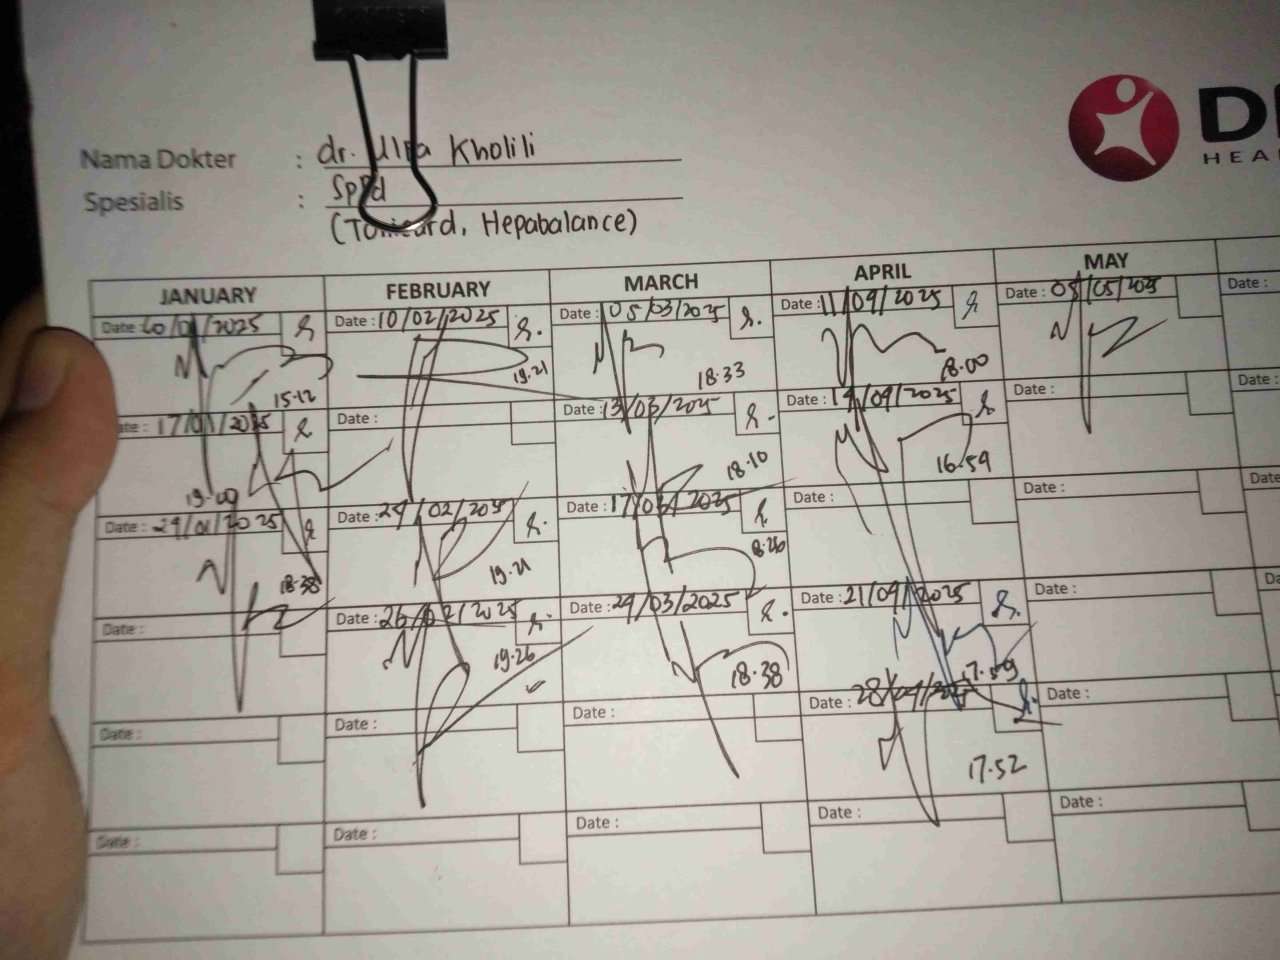 Nama Dokter : dr. Ulfa Kholili
Spesialis : SpPd
(Tonicard, Hepabalance)
D
HEA
JANUARY FEBRUARY MARCH APRIL MAY
Date : 10/01/2025 Date : 10/02/2025 Date : 05/03/2025 Date : 11/04/2025 Date : 05/05/2025 Date :
15.12 19.21 18.33 18.00
Date : 17/01/2025 Date : Date : 13/03/2025 Date : 14/04/2025 Date : Date
19.00 18.10 16.59
Date : 24/01/2025 Date : 24/02/2025 Date : 17/03/2025 Date : Date : Date
18.38 19.21
Date : Date : 26/02/2025 Date : 24/03/2025 Date : 21/04/2025 Date : D
19.26 18.38 17.59
Date : Date : Date : Date : 28/04/2025 Date :
17.52
Date : Date : Date : Date : Date :